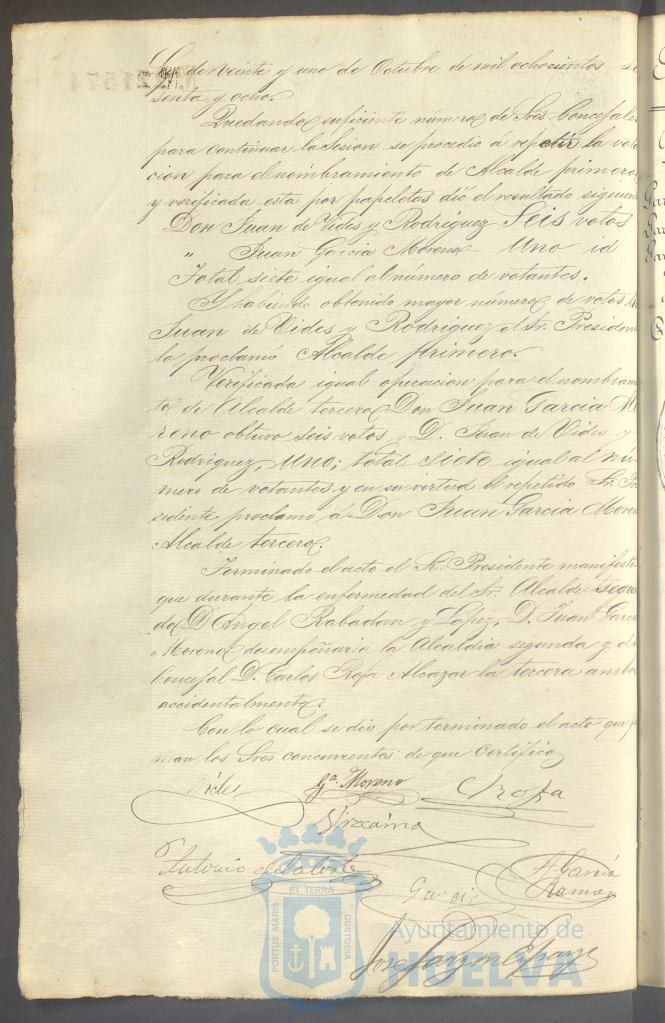 de veinte y uno de Octubre de mil ochocientos se
senta y ocho.
Quedando suficiente número de Sres Concejales
para continuar la Sesion se procedió á repetir la vota
cion para el nombramiento de Alcalde primero
y verificada esta por papeletas dió el resultado siguien
Don Juan de Vides y Rodriguez Seis votos
" Juan Garcia Moreno Uno id
Total siete igual al número de votantes.
Y habiendo obtenido mayor número de votos
Juan de Vides y Rodriguez el Sr. Presiden
le proclamó Alcalde primero.
Verificada igual operacion para el nombram
to de Alcalde tercero Don Juan Garcia M
reno obtuvo seis votos y D. Juan de Vides y
Rodriguez, uno; total siete igual al nú
mero de votantes y en su virtud el repetido Sr. Pre
sidente proclamó á Don Juan Garcia More
Alcalde tercero.
Terminado el acto el Sr. Presidente manifestó
que durante la enfermedad del Sr. Alcalde segun
do D. Angel Rabadan y Lopez, D. Juan Garci
Moreno desempeñaria la Alcaldia segunda y el
Concejal D. Carlos Rofa Alcazar la tercera ambos
accidentalmente.
Con lo cual se dio por terminado el acto que fir
man los Sres concurrentes de que Certifico
Vides Ga. Moreno Rofa
Antonio de la Corte
A Garcia
Ramos
Garcia
Jose
PORTUS MARIS ET TERRÆ CUSTODIA
Ayuntamiento de
HUELVA